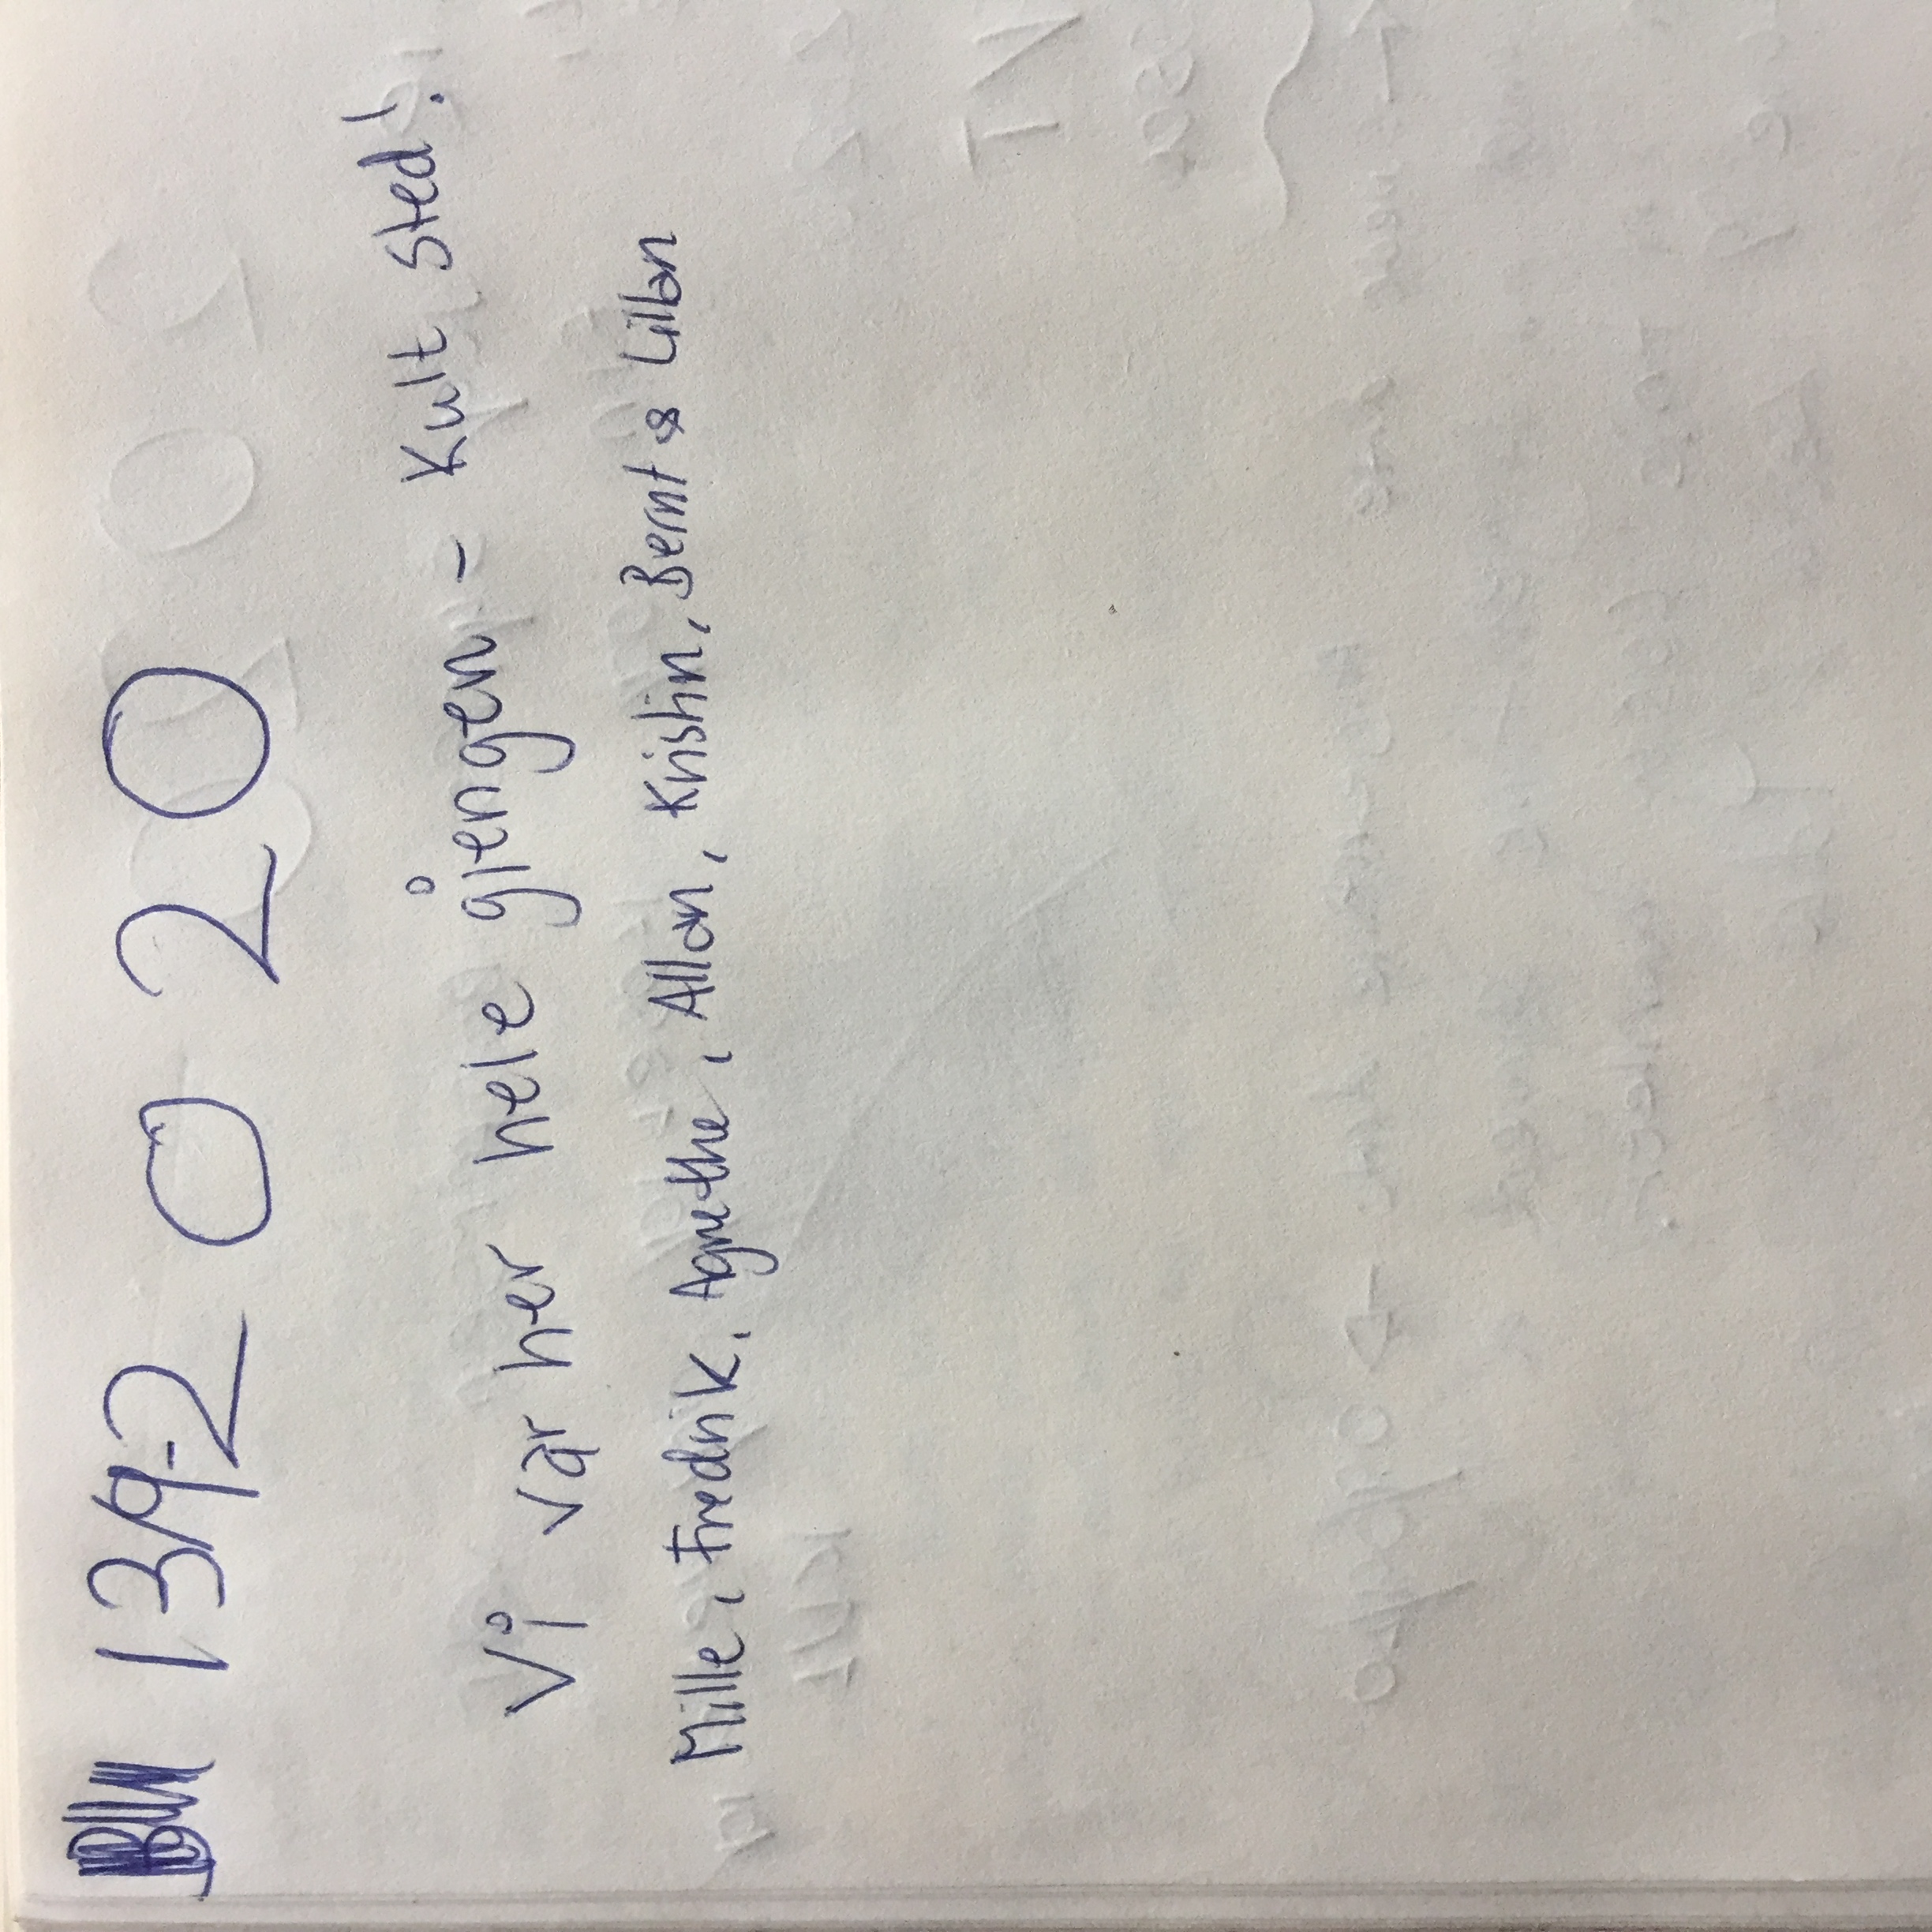 13/9-2020
Vi var her hele gjengen - Kult sted!
Mille, Fredrik, Agnethe, Allan, Kristin, Bernt & Lillan